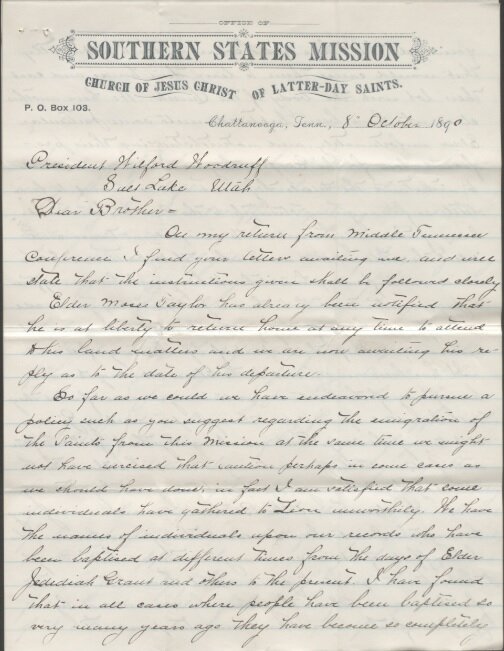 OFFICE OF
SOUTHERN STATES MISSION
CHURCH OF JESUS CHRIST OF LATTER-DAY SAINTS.
P. O. Box 103.
Chattanooga, Tenn., 8" October 1890
President Wilford Woodruff
Salt Lake Utah
Dear Brother=
On my return from Middle Tennessee
Conference I find your letters awaiting me, and will
state that the instructions given shall be followed closely
Elder Moses Taylor has already been notified that
he is at liberty to return home at any time to attend
to his land matters and we are now awaiting his re-
ply as to the date of his departure.
So far as we could we have endeavord to pursue a
policy such as you suggest regarding the emigration of
the Saints from this Mission at the same time we might
not have exercised that caution perhaps in some cases as
we should have done, in fact I am satisfied that some
individuals have gathered to Zion unworthily. We have
the names of individuals upon our records who have
been baptised at different times from the days of Elder
Jedediah Grant and others to the present. I have found
that in all cases where people have been baptised so
very many years ago they have become so completely